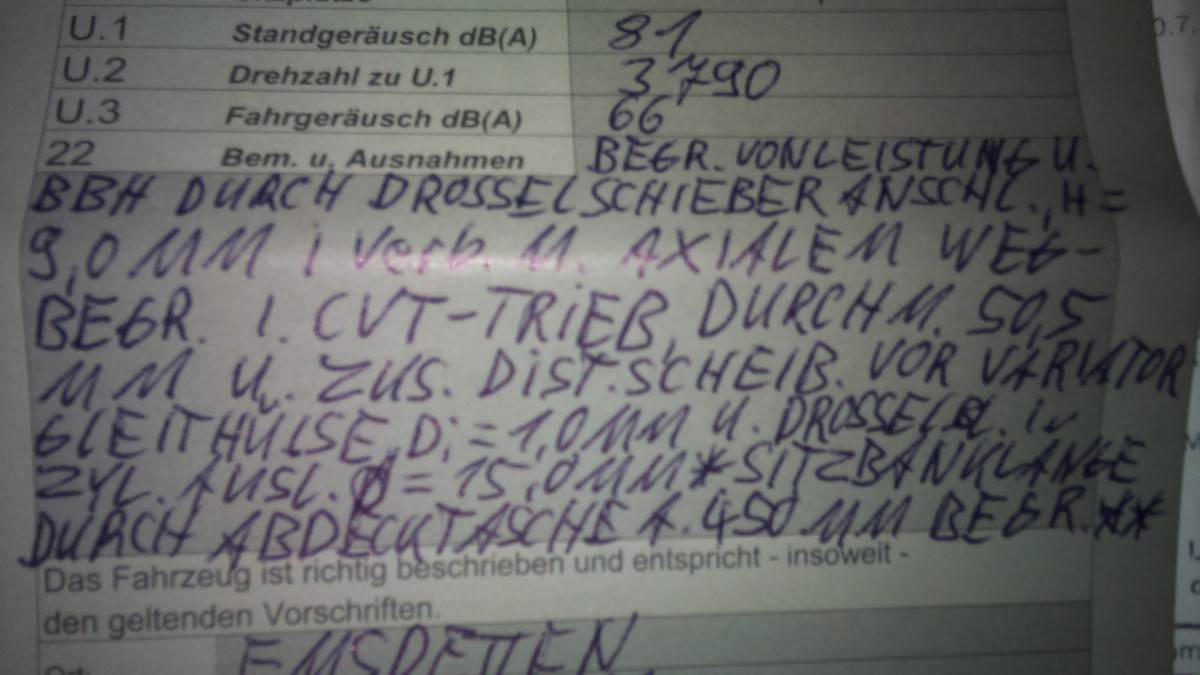 U.1 Standgeräusch dB(A) 81
U.2 Drehzahl zu U.1 3790
U.3 Fahrgeräusch dB(A) 66
22 Bem. u. Ausnahmen BEGR. VON LEISTUNG U.
BBH DURCH DROSSELSCHIEBER ANSCHL., H=
9,0 MM i Verb. M. AXIALEM WEG-
BEGR. I. CVT-TRIEB, DURCHM. 50,5
MM U. ZUS. DIST.SCHEIB. VOR VARIATOR
GLEITHÜLSE, Di=1,0MM U. DROSSELBL. i.
ZYL. AUSL. Ø=15,0MM*SITZBANKLÄNGE
DURCH ABDECKTASCHE A. 450 MM BEGR.**
Das Fahrzeug ist richtig beschrieben und entspricht - insoweit -
den geltenden Vorschriften.
Ort EMSDETTEN